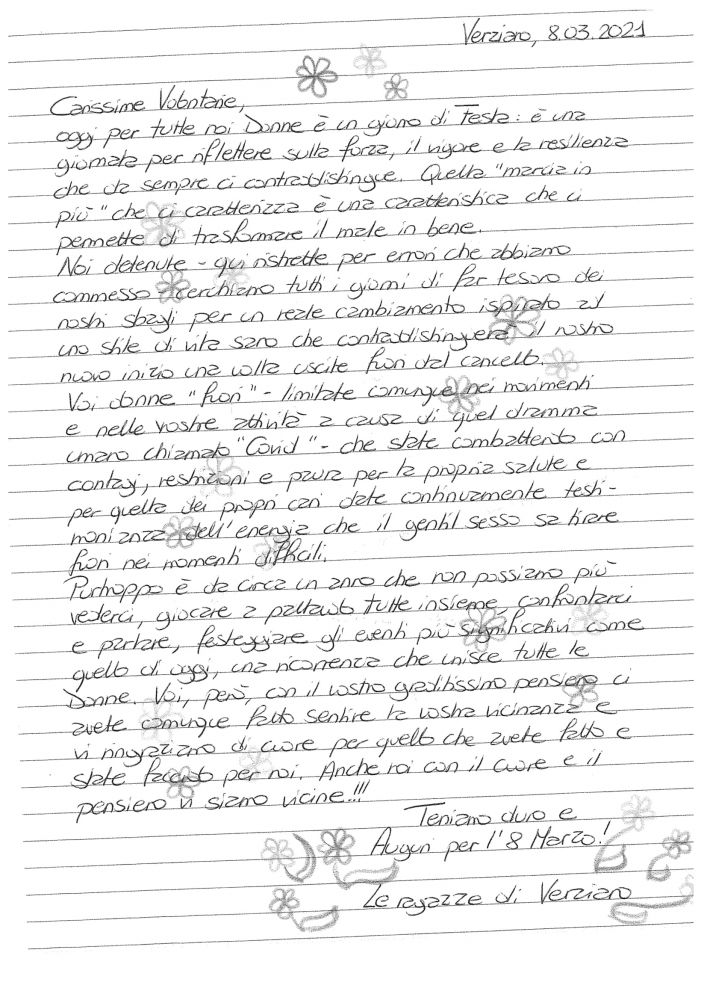 Verziano, 8.03.2021
Carissime Volontarie,
oggi per tutte noi Donne è un giorno di Festa: è una
giornata per riflettere sulla forza, il vigore e la resilienza
che da sempre ci contraddistingue. Quella "marcia in
più" che ci caratterizza è una caratteristica che ci
permette di trasformare il male in bene.
Noi detenute - qui ristrette per errori che abbiamo
commesso - cerchiamo tutti i giorni di far tesoro dei
nostri sbagli per un reale cambiamento ispirato ad
uno stile di vita sano che contraddistinguerà il nostro
nuovo inizio una volta uscite fuori dal cancello.
Voi donne "fuori" - limitate comunque nei movimenti
e nelle vostre attività a causa di quel dramma
umano chiamato "Covid" - che state combattendo con
contagi, restrizioni e paura per la propria salute e
per quella dei propri cari date continuamente testi-
monianza dell'energia che il gentil sesso sa tirare
fuori nei momenti difficili.
Purtroppo è da circa un anno che non possiamo più
vederci, giocare a pallavolo tutte insieme, confrontarci
e parlare, festeggiare gli eventi più significativi come
quello di oggi, una ricorrenza che unisce tutte le
Donne. Voi, però, con il vostro graditissimo pensiero ci
avete comunque fatto sentire la vostra vicinanza e
vi ringraziamo di cuore per quello che avete fatto e
state facendo per noi. Anche noi con il cuore e il
pensiero vi siamo vicine!!!
Teniamo duro e
Auguri per l'8 Marzo!
Le ragazze di Verziano